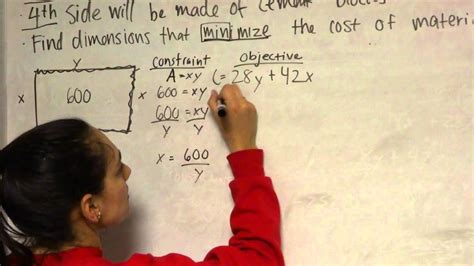 · 4th Side will be made of cement blocks
· Find dimensions that minimize the cost of materi
constraint objective
y A = xy C = 28y + 42x
x 600 x 600 = xy
600 = xy
y y
x = 600
y